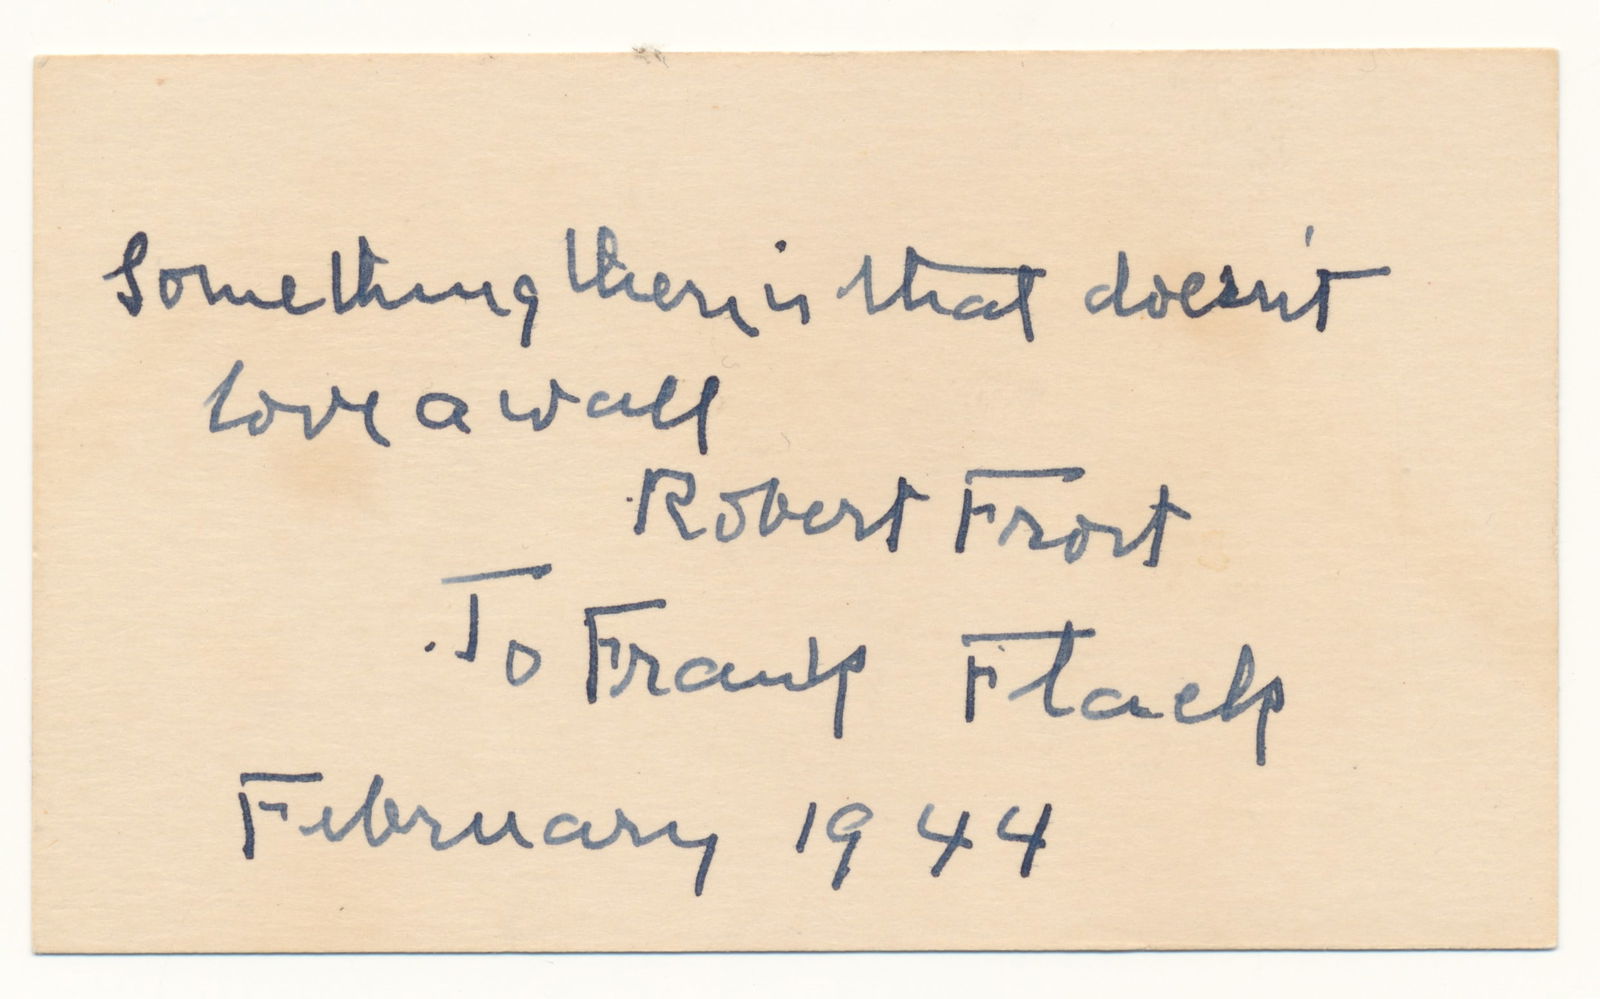 Something there is that doesn't
love a wall
Robert Frost
To Frank Flack
February 1944